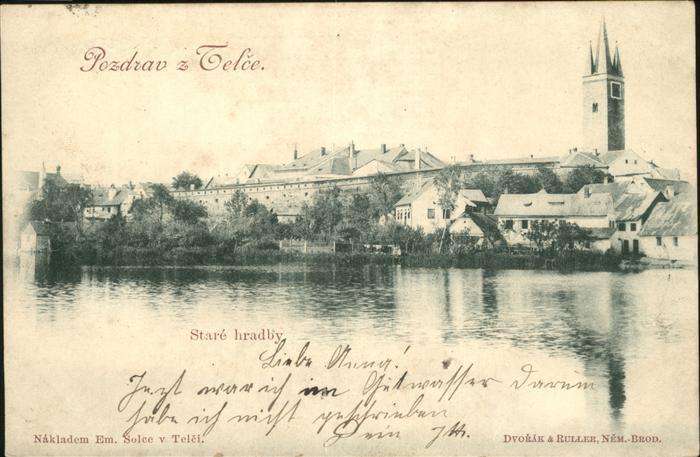 Pozdrav z Telče.
Staré hradby
Liebe Anna!
Jezt war ich im Gutwasser Darum
habe ich nicht geschrieben
Dein
Nákladem Em. Šolce v Telči.
DVOŘÁK & RULLER, NĚM.-BROD.